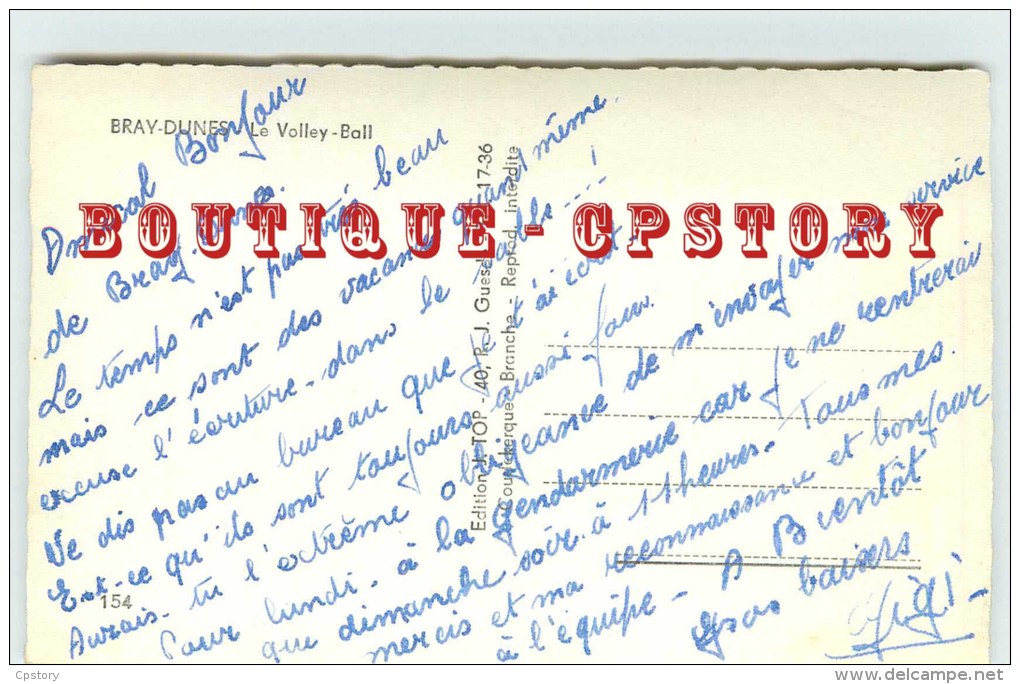 BRAY-DUNES Le Volley-Ball
Bonjour
de Bray-Dunes.
Le temps n'est pas très beau
mais ce sont des vacances quand même.
excuse l'écriture - dans le sable ---- !
Ne dis pas au bureau que je t'ai écrit
Est-ce qu'ils sont toujours aussi fous.
Aurais-tu l'extrème obligeance de m'envoyer mon service
Pour lundi - à la gendarmerie car je ne rentrerai
que dimanche soir à 11 heures - Tous mes
mercis et ma reconnaissance et bonjour
à l'équipe - A Bientôt
Gros baisers
Gigi -
154
Edition J. TOP - 40, R. J. Guesde 17-36
Coudekerque-Branche - Reprod. interdite
BOUTIQUE - CPSTORY
Cpstory
www.delcampe.net